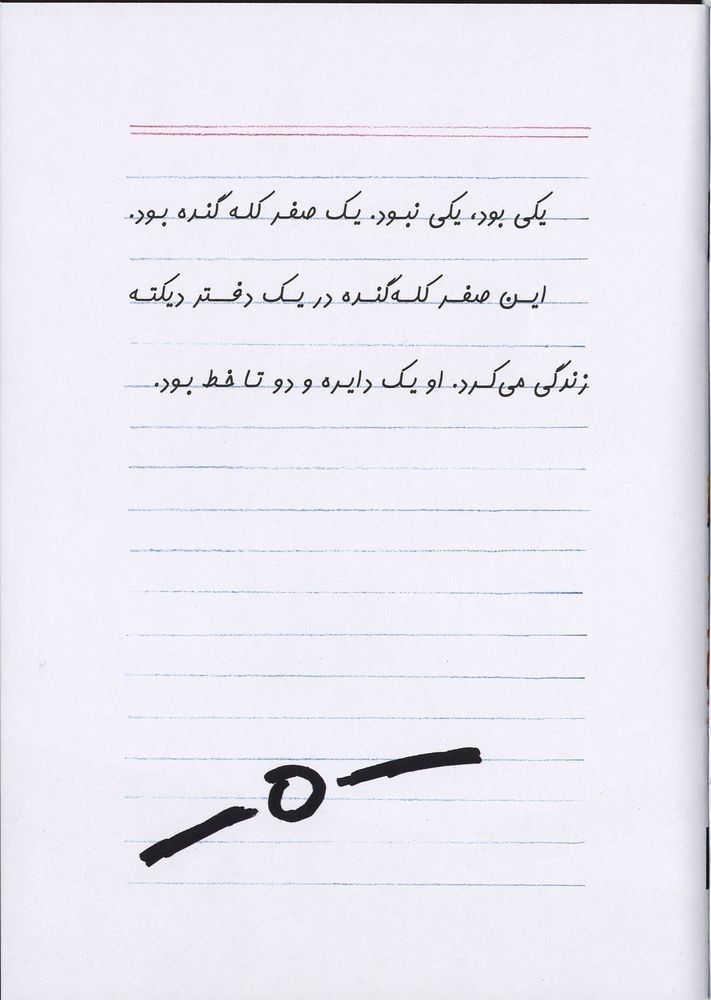 یکی بود، یکی نبود. یک صفر کله گنده بود.
این صفر کله‌گنده در یک دفتر دیکته
زندگی می‌کرد. او یک دایره و دو تا خط بود.